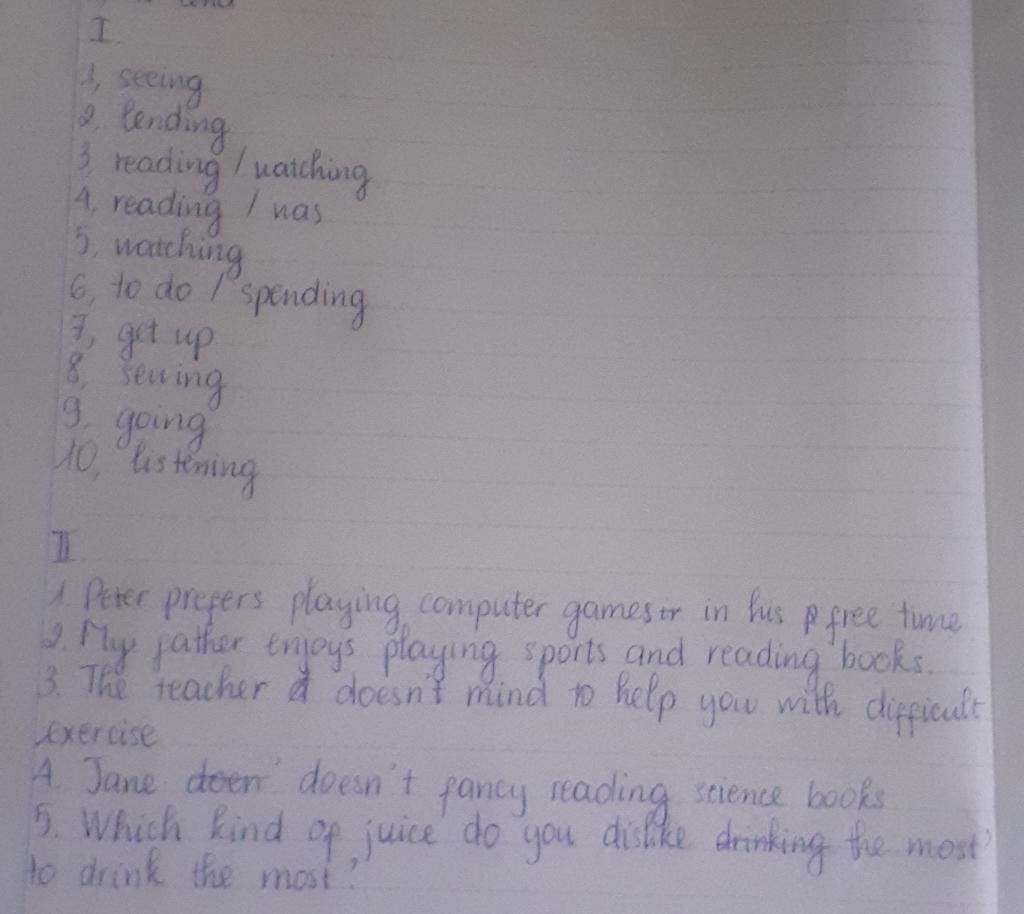 I
1, seeing
2, lending
3, reading / watching
4, reading / was
5, watching
6, to do / spending
7, get up
8, sewing
9, going
10, listening
II
1. Peter prefers playing computer games in his free time
2. My father enjoys playing sports and reading books.
3. The teacher doesn't mind to help you with difficult
exercise
4. Jane doesn't fancy reading science books
5. Which kind of juice do you dislike drinking the most?
to drink the most?